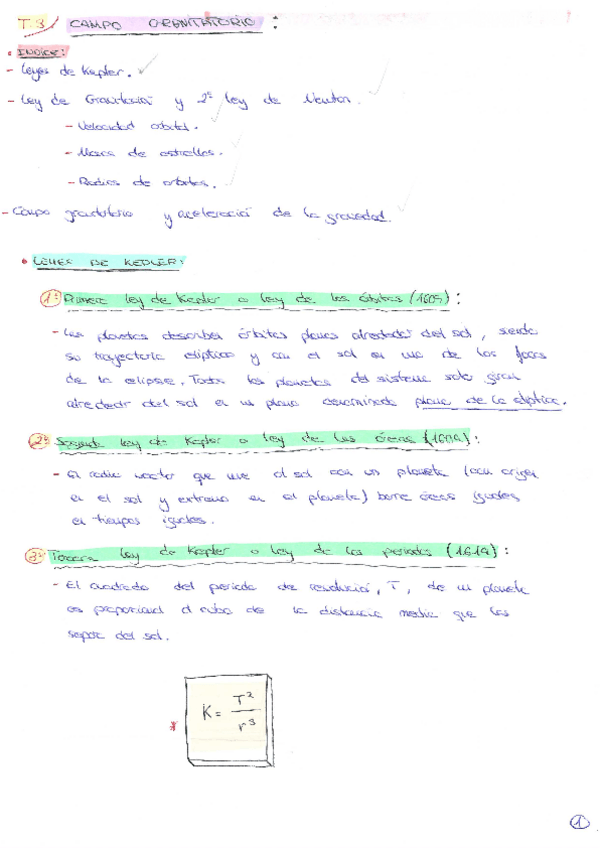 T.3/ CAMPO GRAVITATORIO :
• INDICE:
- Leyes de Kepler.
- Ley de Gravitación y 2ª Ley de Newton.
- Velocidad orbital.
- Masa de estrellas.
- Radios de orbitas.
- Campo gravitatorio y aceleració de la gravedad.
• LEYES DE KEPLER:
1ª Primera Ley de Kepler o Ley de las órbitas (1609) :
- Los planetas describen órbitas planas alrededor del sol, siendo
su trayectoria elíptica y con el sol en uno de los focos
de la elipse. Todos los planetas del sistema solar giran
alrededor del sol en un plano denominado plano de la elíptica.
2ª Segunda Ley de Kepler o Ley de las áreas (1609) :
- El radio vector que une el sol con un planeta (con origen
en el sol y extremo en el planeta) barre áreas iguales
en tiempos iguales.
3ª Tercera Ley de Kepler o Ley de los periodos (1619) :
- El cuadrado del periodo de revolució, T, de un planeta
es proporcional al cubo de la distancia media que los
separa del sol.
* K = T² / r³
1